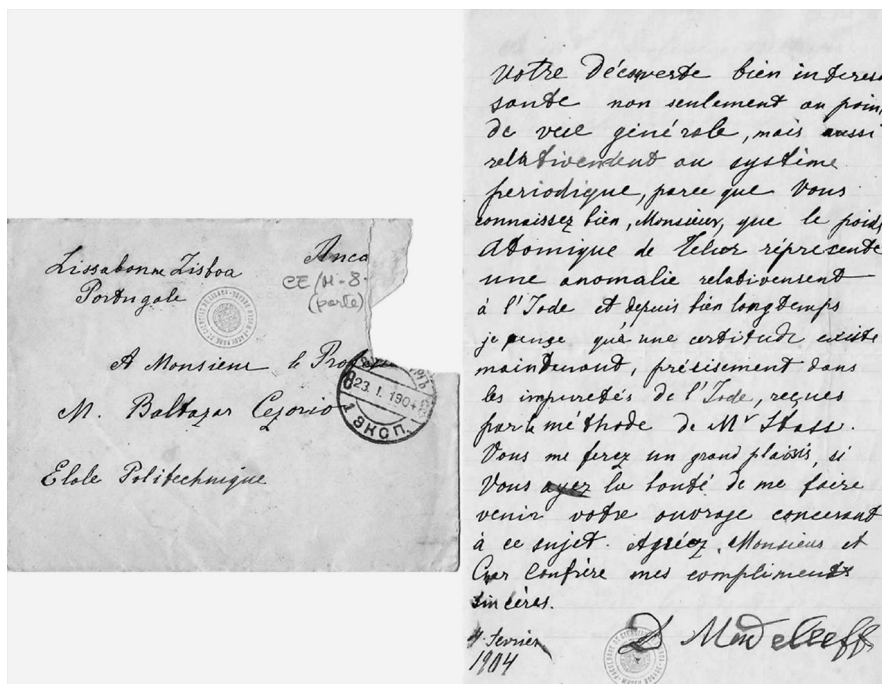 Lissabonne Lisboa
Portugale
Anca
CE/M-8
(parte)
A Monsieur le Prof
M. Baltazar Cezorio
Elole Politechnique
23. 1. 1904
1 ЭКСП.
Votre Décowerte bien interes
sante non seulement au poin
de vue générale, mais aussi
relativement au système
periodique, parce que Vous
connaissez bien, Monsieur, que le poids
Atomique de Telior réprésente
une anomalie relativement
à l'Iode et depuis bien longtemps
je pense qu'à une certitude existe
maintenant, présisement dans
les impuretés de l'Iode, reçues
par la méthode de Mr Stass.
Vous me ferez un grand plaisir, si
Vous ayez la bonté de me faire
venir votre ouvrage concernant
à ce sujet. Agréez, Monsieur et
Cher Confrère mes compliments
sincères.
D Mendeleeff
4 fevrier
1904